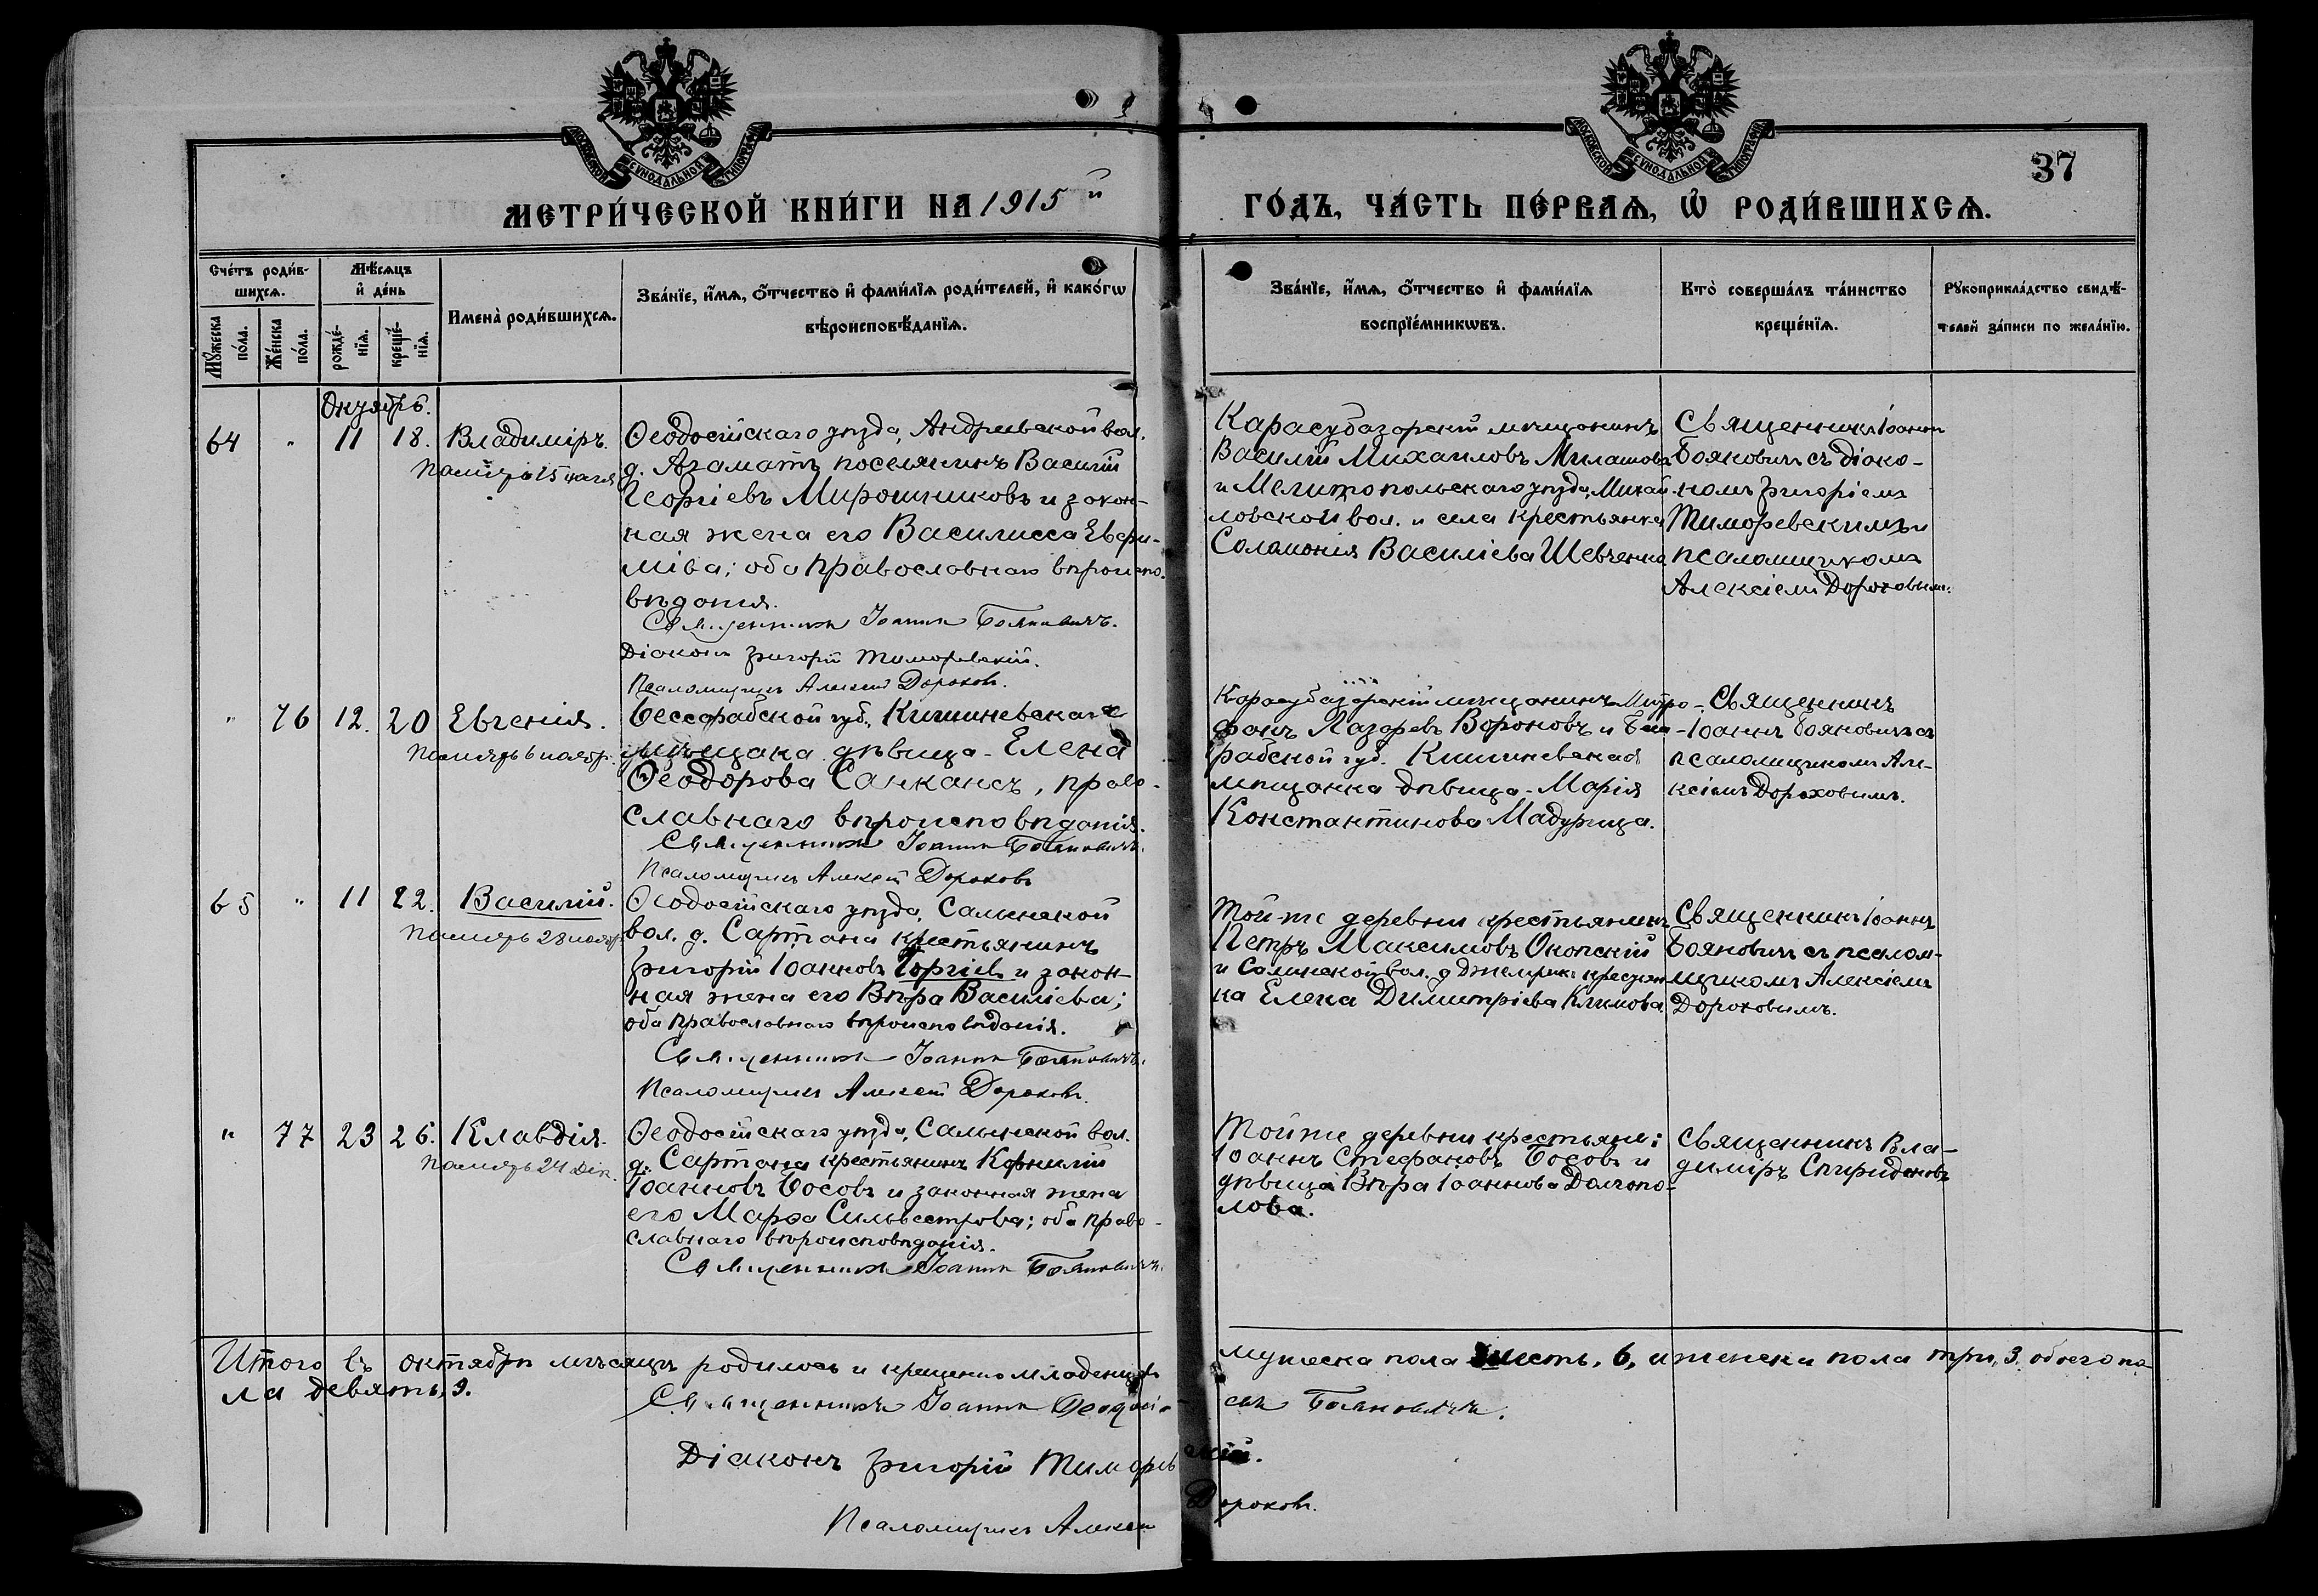 МОСКОВСКОЙ СУНОДАЛЬНОЙ ТИПОГРАФІИ
МОСКОВСКОЙ СУНОДАЛЬНОЙ ТИПОГРАФІИ
37
МЕТРИ́ЧЕСКОЙ КНИ́ГИ НА 1915 й
ГО́ДЪ, ЧА́СТЬ ПЕ́РВАѦ, Ѡ҆ РОДИ́ВШИХСѦ.
Сче́тъ роди́в-
шихсѧ.
Мꙋ́жеска
по́ла.
Же́нска
по́ла.
Мѣ́сѧцъ
и҆ де́нь
рожде́-
нїѧ.
креще́-
нїѧ.
Имена̀ роди́вшихсѧ.
Зва́нїе, и҆́мѧ, ѻ҆́тчество и҆ фами́лїѧ роди́телей, и҆ како́гѡ
вѣроисповѣ́данїѧ.
Зва́нїе, и҆́мѧ, ѻ҆́тчество и҆ фами́лїѧ
воспрїе́мникѡвъ.
Кто̀ соверша́лъ та́инство
креще́нїѧ.
Рꙋкоприкла́дство свидѣ́-
телей за́писи по жела́нїю.
Октябрь.
64 " 11 18. Владиміръ.
Память 15 іюля
Ѳеодосійскаго уѣзда, Андреевской вол.
д. Агаматъ поселянинъ Василій
Георгіевъ Мирошниковъ и закон-
ная жена его Василисса Евфи-
міва; оба православнаго вѣроиспо-
вѣданія.
Священникъ Іоаннъ Бояновичъ.
Діаконъ Григорій Тиморевскій.
Псаломщикъ Алексій Дороховъ.
Карасубазарскій мѣщанинъ
Василій Михаиловъ Милашовъ
и Мелитопольскаго уѣзда, Михай-
ловской вол. и села крестьянка
Соломонія Василіева Шевченко
Священникъ Іоаннъ
Бояновичъ съ діако-
номъ Григоріемъ
Тиморевскимъ и
псаломщикомъ
Алексіемъ Дороховымъ.
" 76 12. 20 Евгенія.
Память 6 ноябр.
Бессарабской губ., Кишиневская
мѣщанка дѣвица - Елена
Ѳеодорова Санкансъ, право-
славнаго вѣроисповѣданія.
Священникъ Іоаннъ Бояновичъ.
Псаломщикъ Алексій Дороховъ
Карасубазарскій мѣщанинъ Митро-
фанъ Лазаревъ Вороновъ и Бесса-
рабской губ. Кишиневская
мѣщанка дѣвица - Марія
Константинова Мадурица.
Священникъ
Іоаннъ Бояновичъ съ
псаломщикомъ Але-
ксіемъ Дороховымъ.
65 " 11 22. Василій.
Память 28 ноябр.
Ѳеодосійскаго уѣзда, Салынской
вол. д. Сартана крестьянинъ
Григорій Іоанновъ Горгіевъ и закон-
ная жена его Вѣра Василіева;
оба православнаго вѣроисповѣданія.
Священникъ Іоаннъ Бояновичъ.
Псаломщикъ Алексій Дороховъ.
Той-же деревни крестьянинъ
Петръ Максимовъ Окопскій
и Салынской вол. д. крестьян-
ка Елена Димитріева Климова
Священникъ Іоаннъ
Бояновичъ съ псалом-
щикомъ Алексіемъ
Дороховымъ.
" 77 23 26. Клавдія.
Память 24 Дек.
Ѳеодосійскаго уѣзда, Салынской вол.
д. Сартана крестьянинъ Корнилій
Іоанновъ Босовъ и законная жена
его Марѳа Сильвестрова; оба право-
славнаго вѣроисповѣданія.
Священникъ Іоаннъ Бояновичъ.
Той же деревни крестьяне:
Іоаннъ Стефановъ Босовъ и
дѣвица Вѣра Іоаннова Долгопо-
лова.
Священникъ Вла-
диміръ Спиридоновъ
Итого въ октябрѣ мѣсяцѣ родилось и крещено младенцевъ мужеска пола шесть, 6, и женска пола три, 3. обоего по
ла девять, 9.
Священникъ Іоаннъ Ѳеодосі-евъ Бояновичъ.
Діаконъ Григорій Тиморевскій.
Псаломщикъ Алексій Дороховъ.